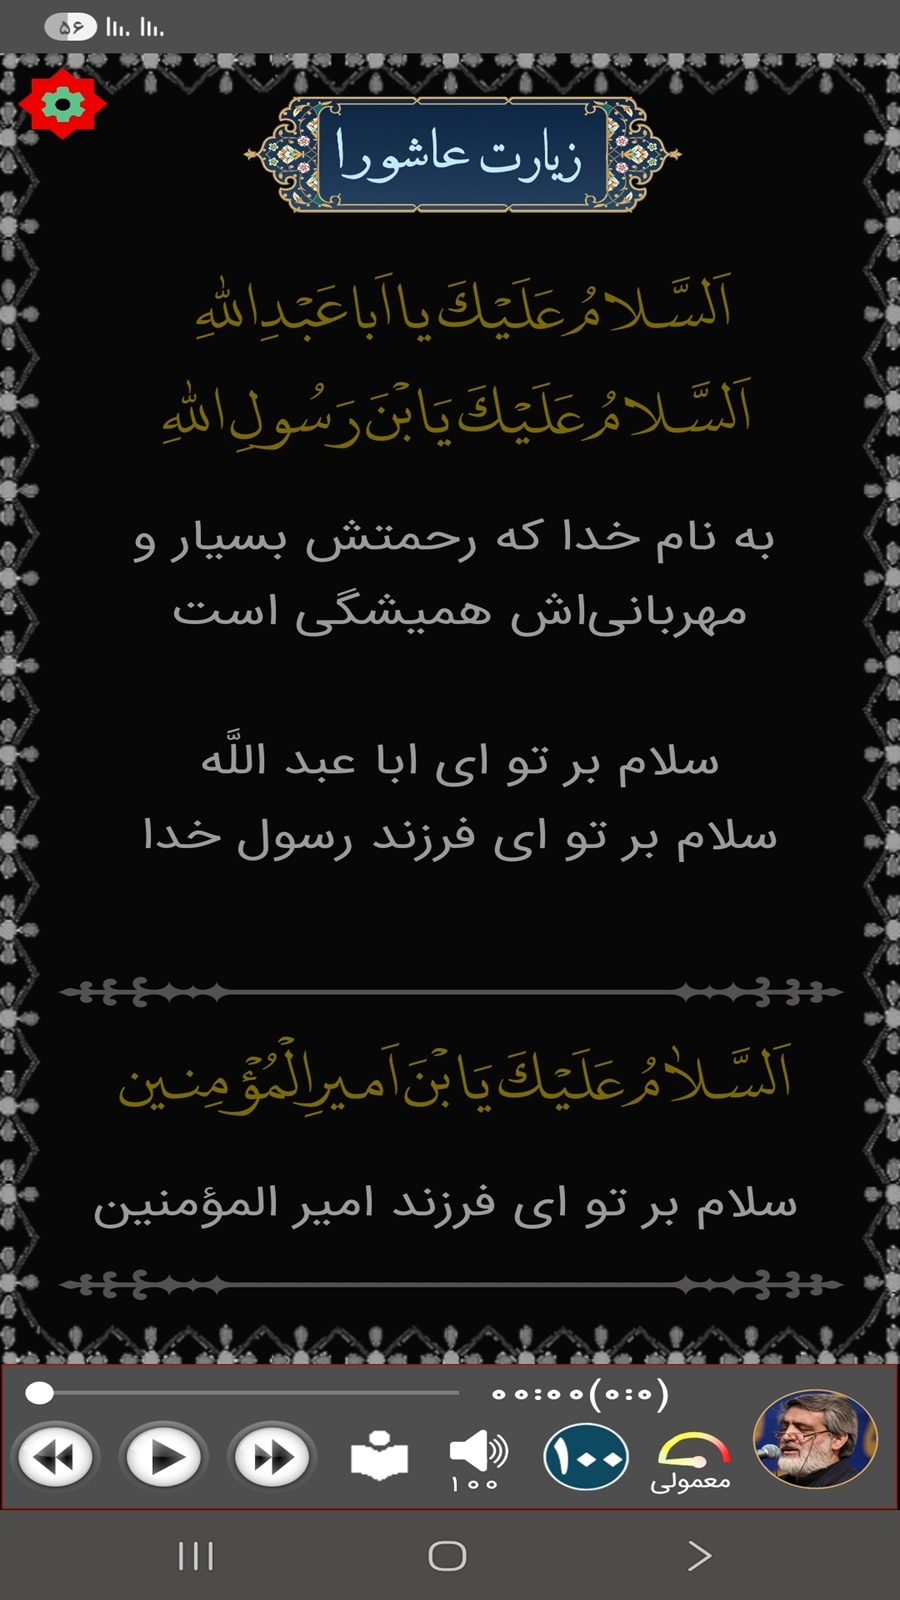 ۵۶
زیارت عاشورا
اَلسَّلامُ عَلَيْكَ يا اَبا عَبْدِ اللهِ
اَلسَّلامُ عَلَيْكَ يَا بْنَ رَسُولِ اللهِ
به نام خدا که رحمتش بسیار و
مهربانی‌اش همیشگی است
سلام بر تو ای ابا عبد اللَّه
سلام بر تو ای فرزند رسول خدا
اَلسَّلامُ عَلَيْكَ يَا بْنَ اَميرِ الْمُؤْمِنين
سلام بر تو ای فرزند امیر المؤمنین
۰۰:۰۰(۰:۰)
۱۰۰
۱۰۰
معمولی